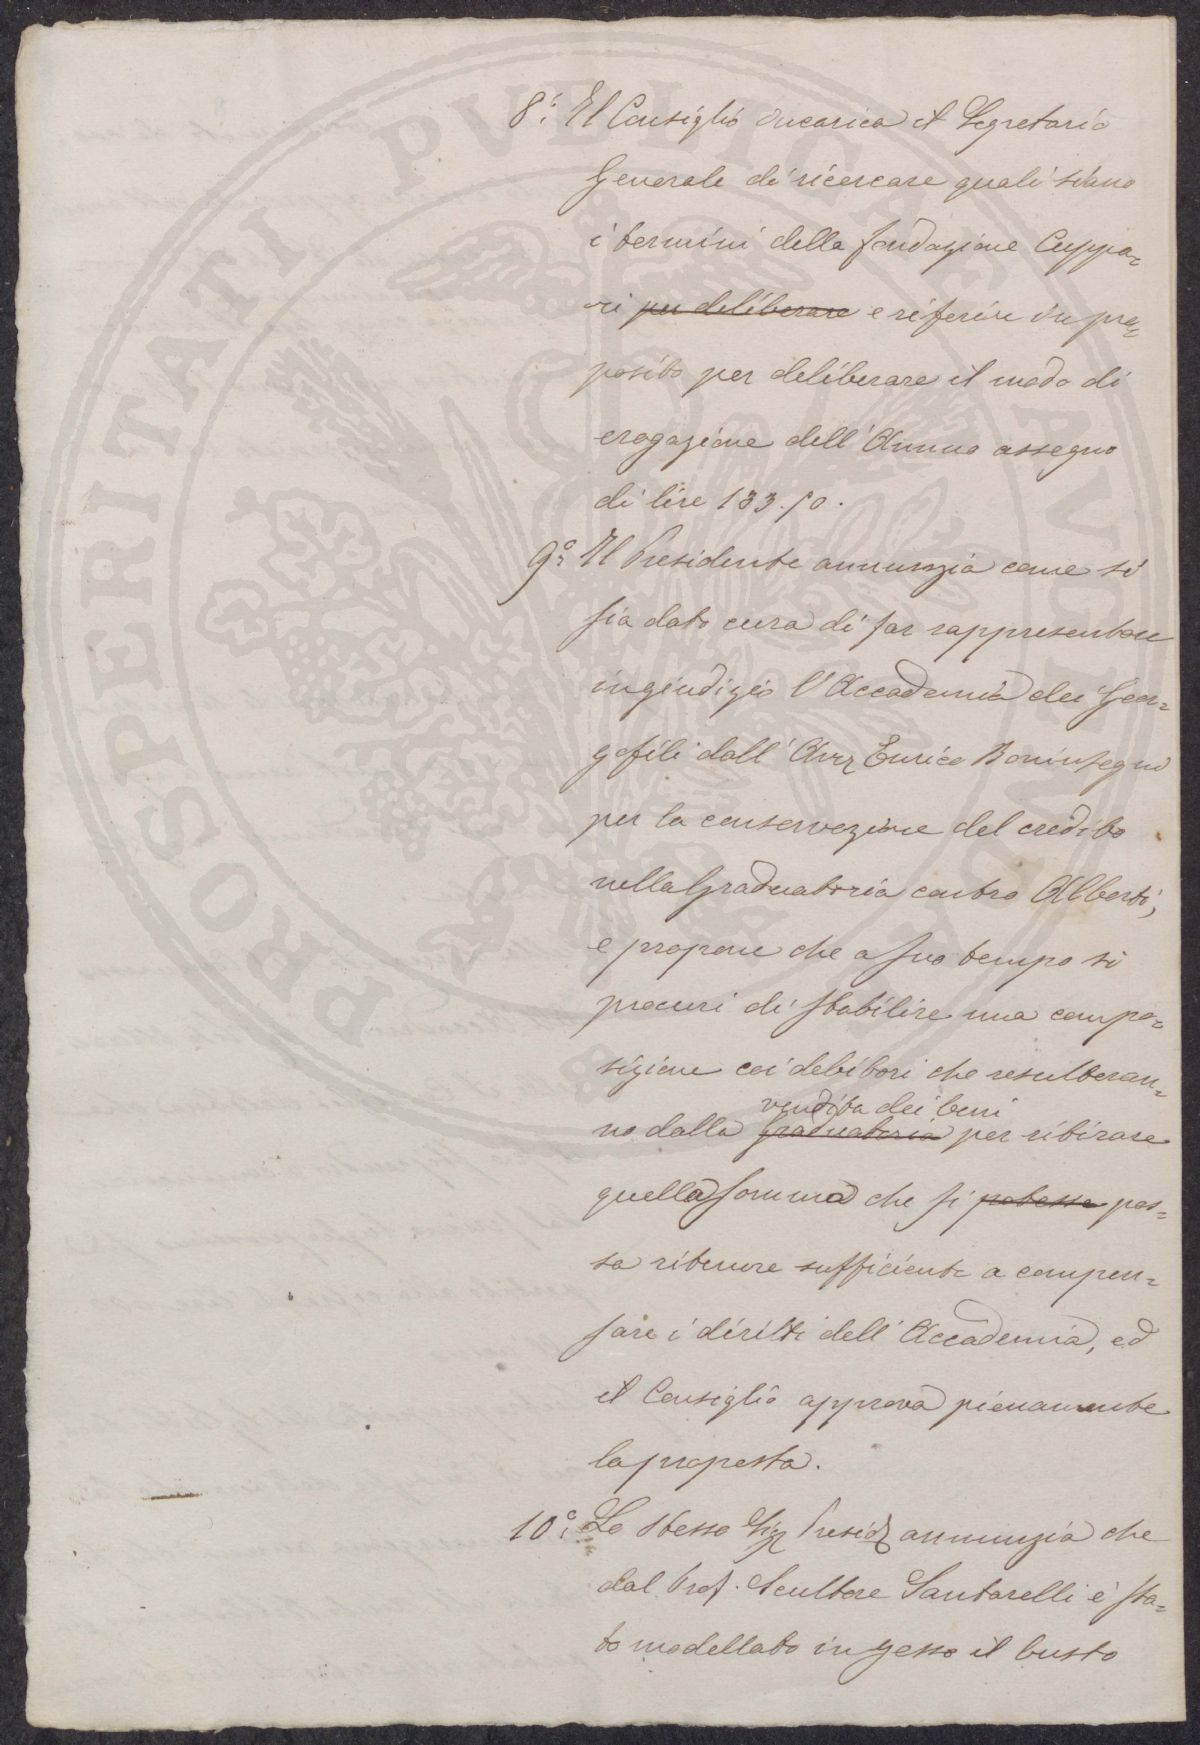 PROSPERITATI PVBLICAE AVGENDAE
8°: Il Consiglio incarica il Segretario
Generale di ricercare quali siano
i termini della fondazione Cuppa=
ri per deliberare e riferire in pro=
posito per deliberare il modo di
erogazione dell'Annuo assegno
di lire 133.50.
9°: Il Presidente annunzia come si
sia dato cura di far rappresentare
in giudizio l'Accademia dei Geor=
gofili dall'Avv Enrico Boninsegni
per la conservazione del credito
nella Graduatoria contro Alberti,
e propone che a suo tempo si
procuri di stabilire una compo=
sizione coi debitori che resulteran=
vendita dei beni
no dalla graduatoria per ritirare
quella somma che si potesse pos=
sa ritenere sufficiente a compen=
sare i diritti dell'Accademia, ed
il Consiglio approva pienamente
la proposta.
10°: Lo stesso Sig Presid annunzia che
dal Prof. Scultore Santarelli è sta=
to modellato in gesso il busto